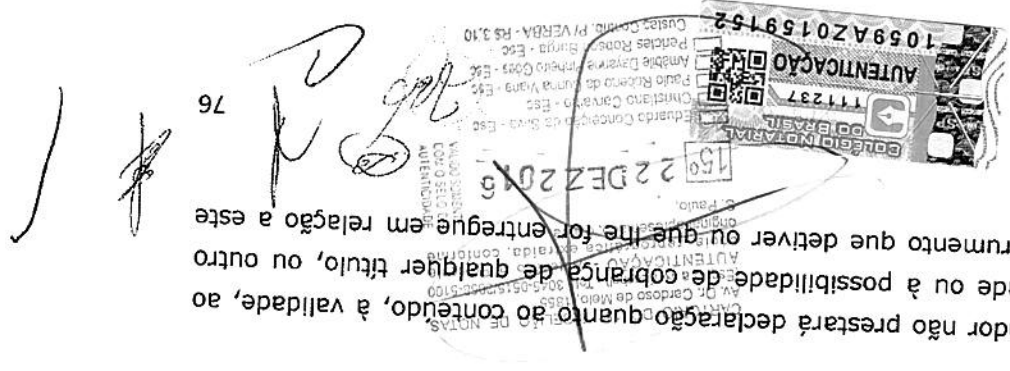 dor não prestará declaração quanto ao conteúdo, à validade, ao
de ou à possibilidade de cobrança de qualquer título, ou outro
rumento que detiver ou que lhe for entregue em relação a este
Av. Dr. Cardoso de Melo, 1855
AUTENTICAÇÃO
S. Paulo,
15º 22 DEZ 2016
VALIDO SOMENTE
COM O SELO DE
AUTENTICIDADE
Eduardo Conceição da Silva - Esc
Christiano Carvalho - Esc
Paulo Roberto da Cunha Viana - Esc
Amabile Dayanne Pinheiro Goes - Esc
Péricles Robson - Esc
P/ VERBA - R$ 3,10
COLÉGIO NOTARIAL
DO BRASIL
111237
AUTENTICAÇÃO
1059AZ0159152
76